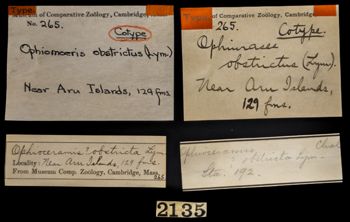 Type.
of Comparative Zoölogy, Cambridge,
No. 265.
Cotype
Ophiomoeris obstrictus (Lym.)
Near Aru Islands, 129 fms.
Type
of Comparative Zoölogy, Cambridge,
265.
Cotype.
Ophiurasse
obstrictus (Lym).
Near Aru Islands,
129 fms.
Ophioceramis? obstricta Lym
Locality: Near Aru Islands, 129 fms.
From Museum Comp. Zoology, Cambridge, Mass.
265
Ophioceramis? Chal
obstricta Lym.
Sta. 192.
2135